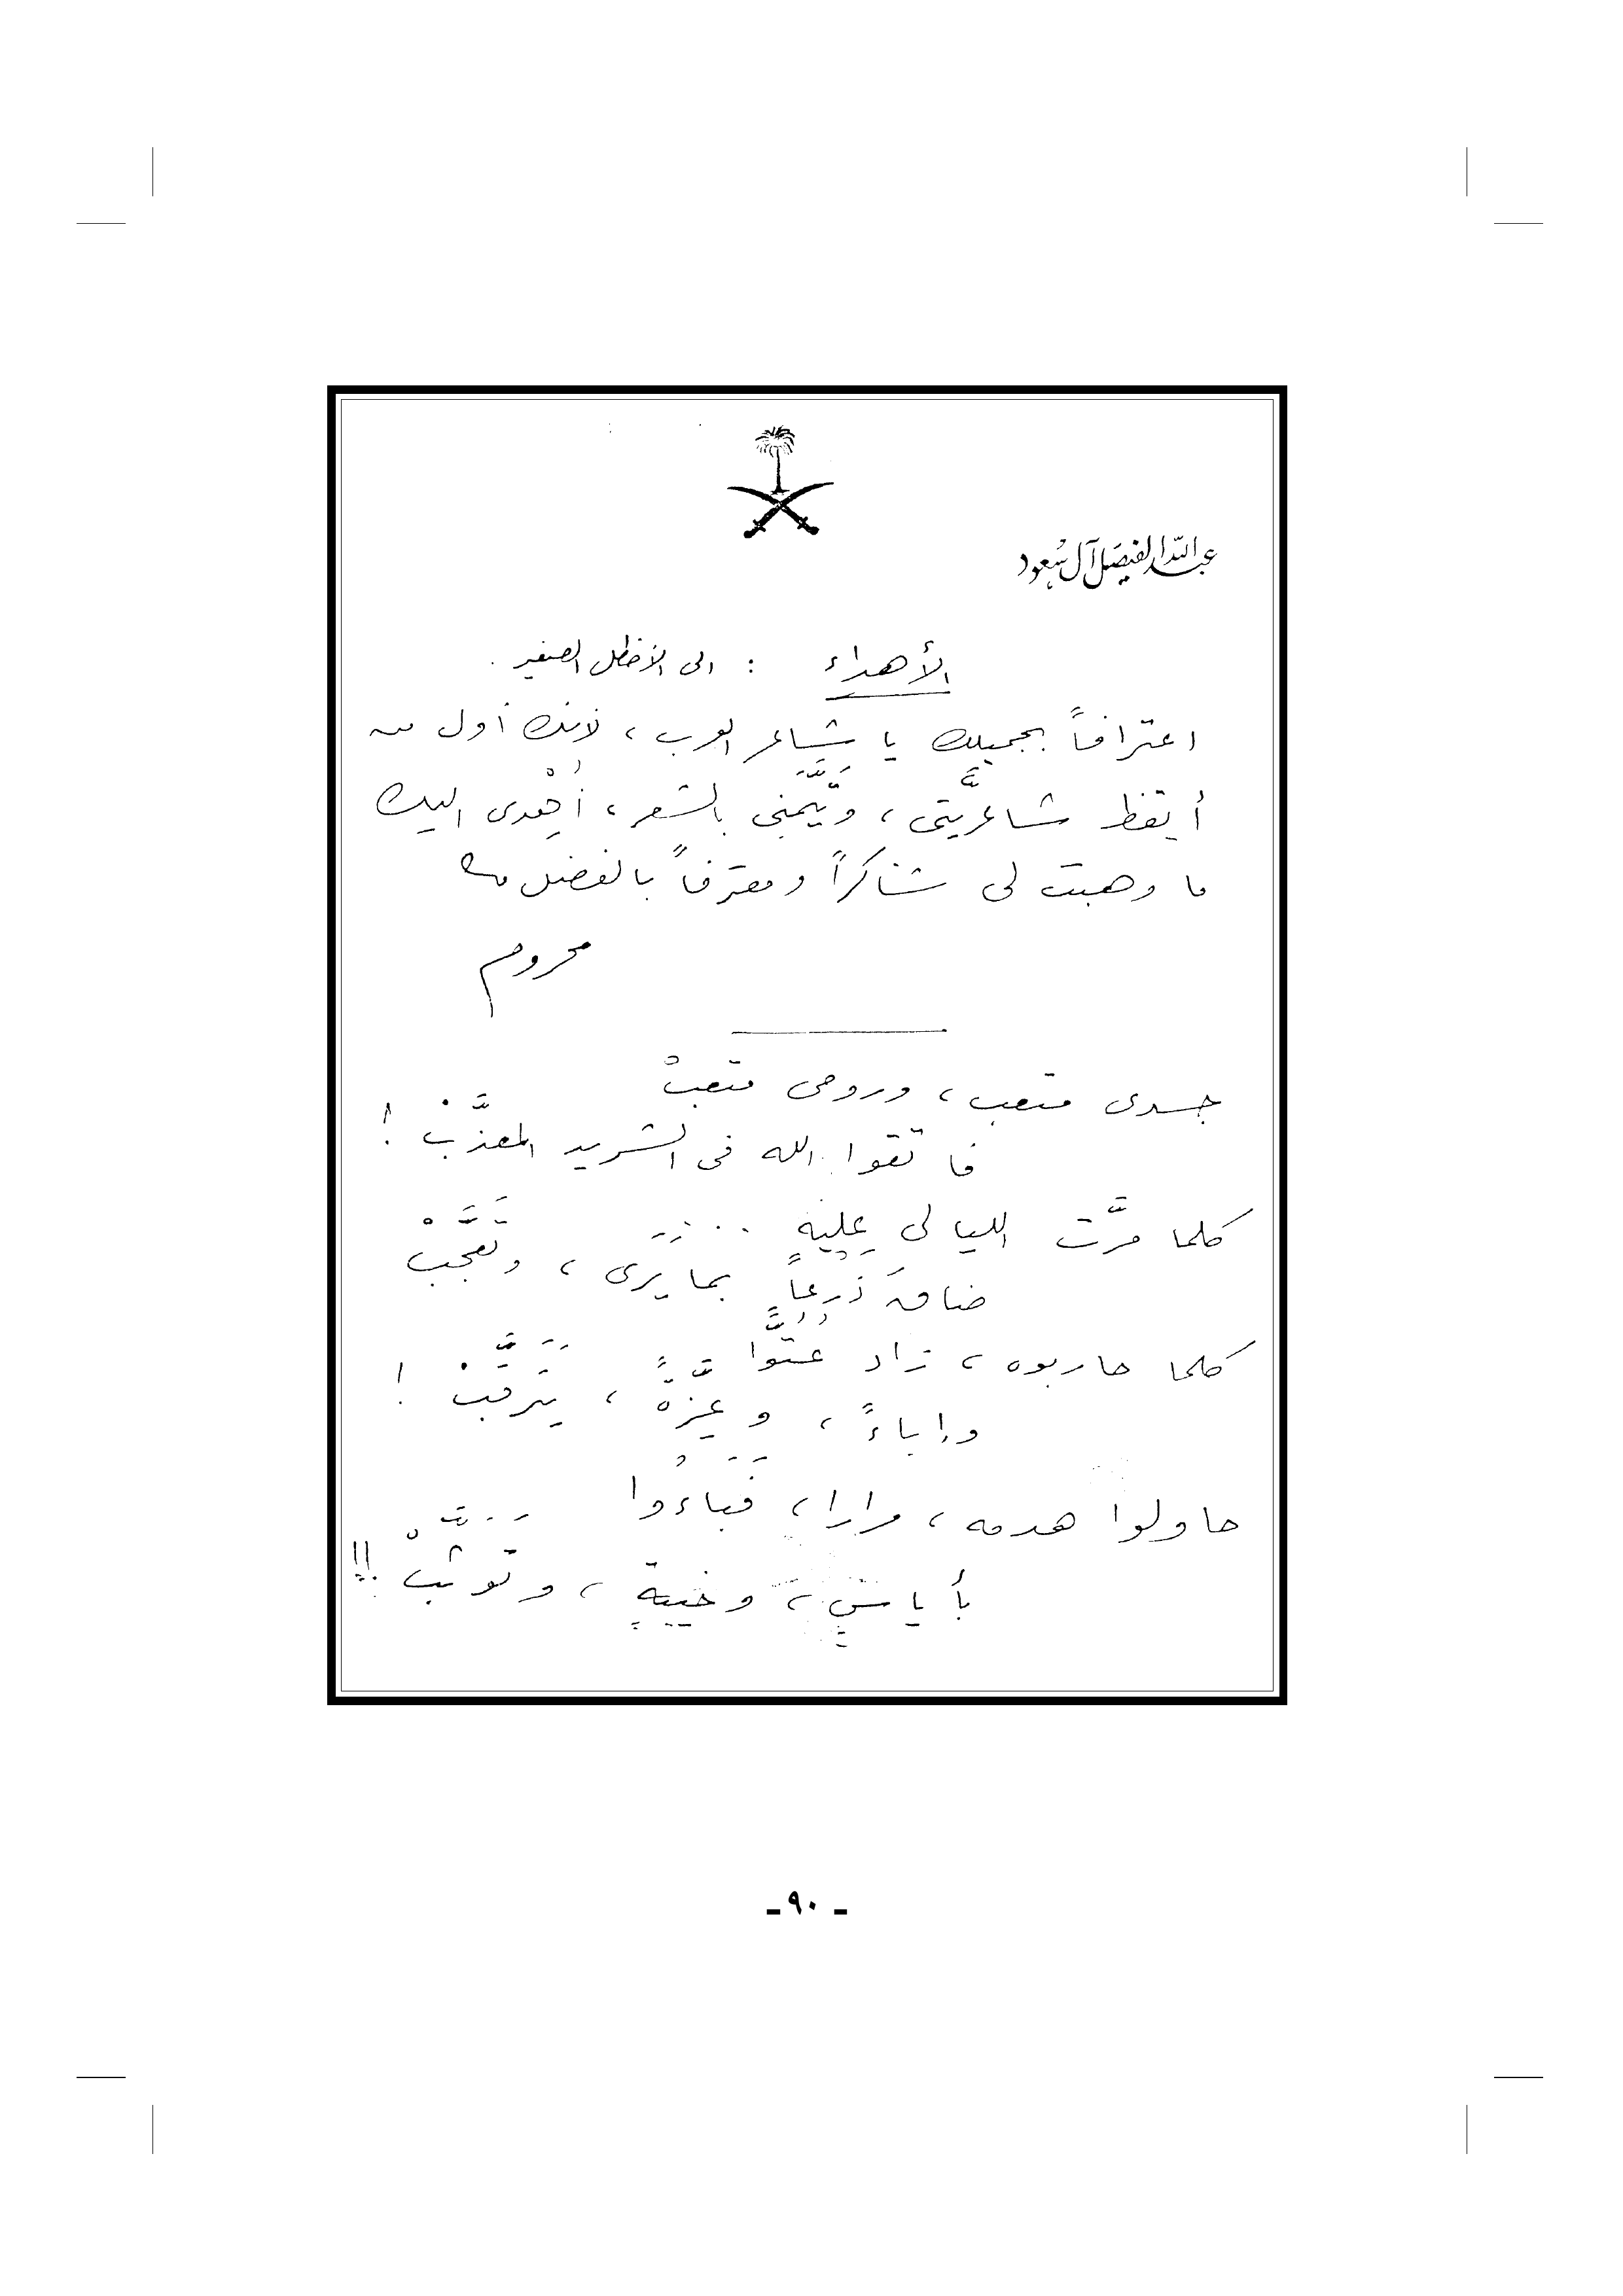 عبد الله الفيصل آل سعود
الأهداء : الى الأخطل الصغير .
اعترافاً بجميلك يا شاعر العرب ، لأنك أول من
أيقظ شاعريَّتى ، وتيَّمنى بالشعر ، أُهْدى اليك
ما وهبت لى شاكراً ومعترفاً بالفضل
محروم
جسدى متعب ، وروحى متعبْ
فاتقوا الله فى الشريد المعذَّبْ !
كلما مرَّت الليالى عليهِ ..
ضاقَ ذرعاً بما يَرَى ، وتَعَجَّبْ
كلما حاربوه ، زاد عُتُوًّا
وإباءً ، وعِزَّةً ، يَتَرَقَّبْ !
حاولوا هدمه ، مرارا ، فَباءُوا
بأياسٍ ، وخَيبَةٍ ، وتَوَثَّبْ !!
- ٩٠ -